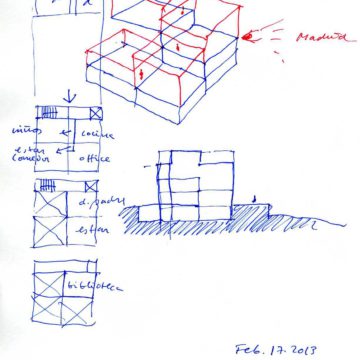 d
Madrid
niños cocina
estar
comedor office
d. padres
estar
biblioteca
Feb. 17. 2013